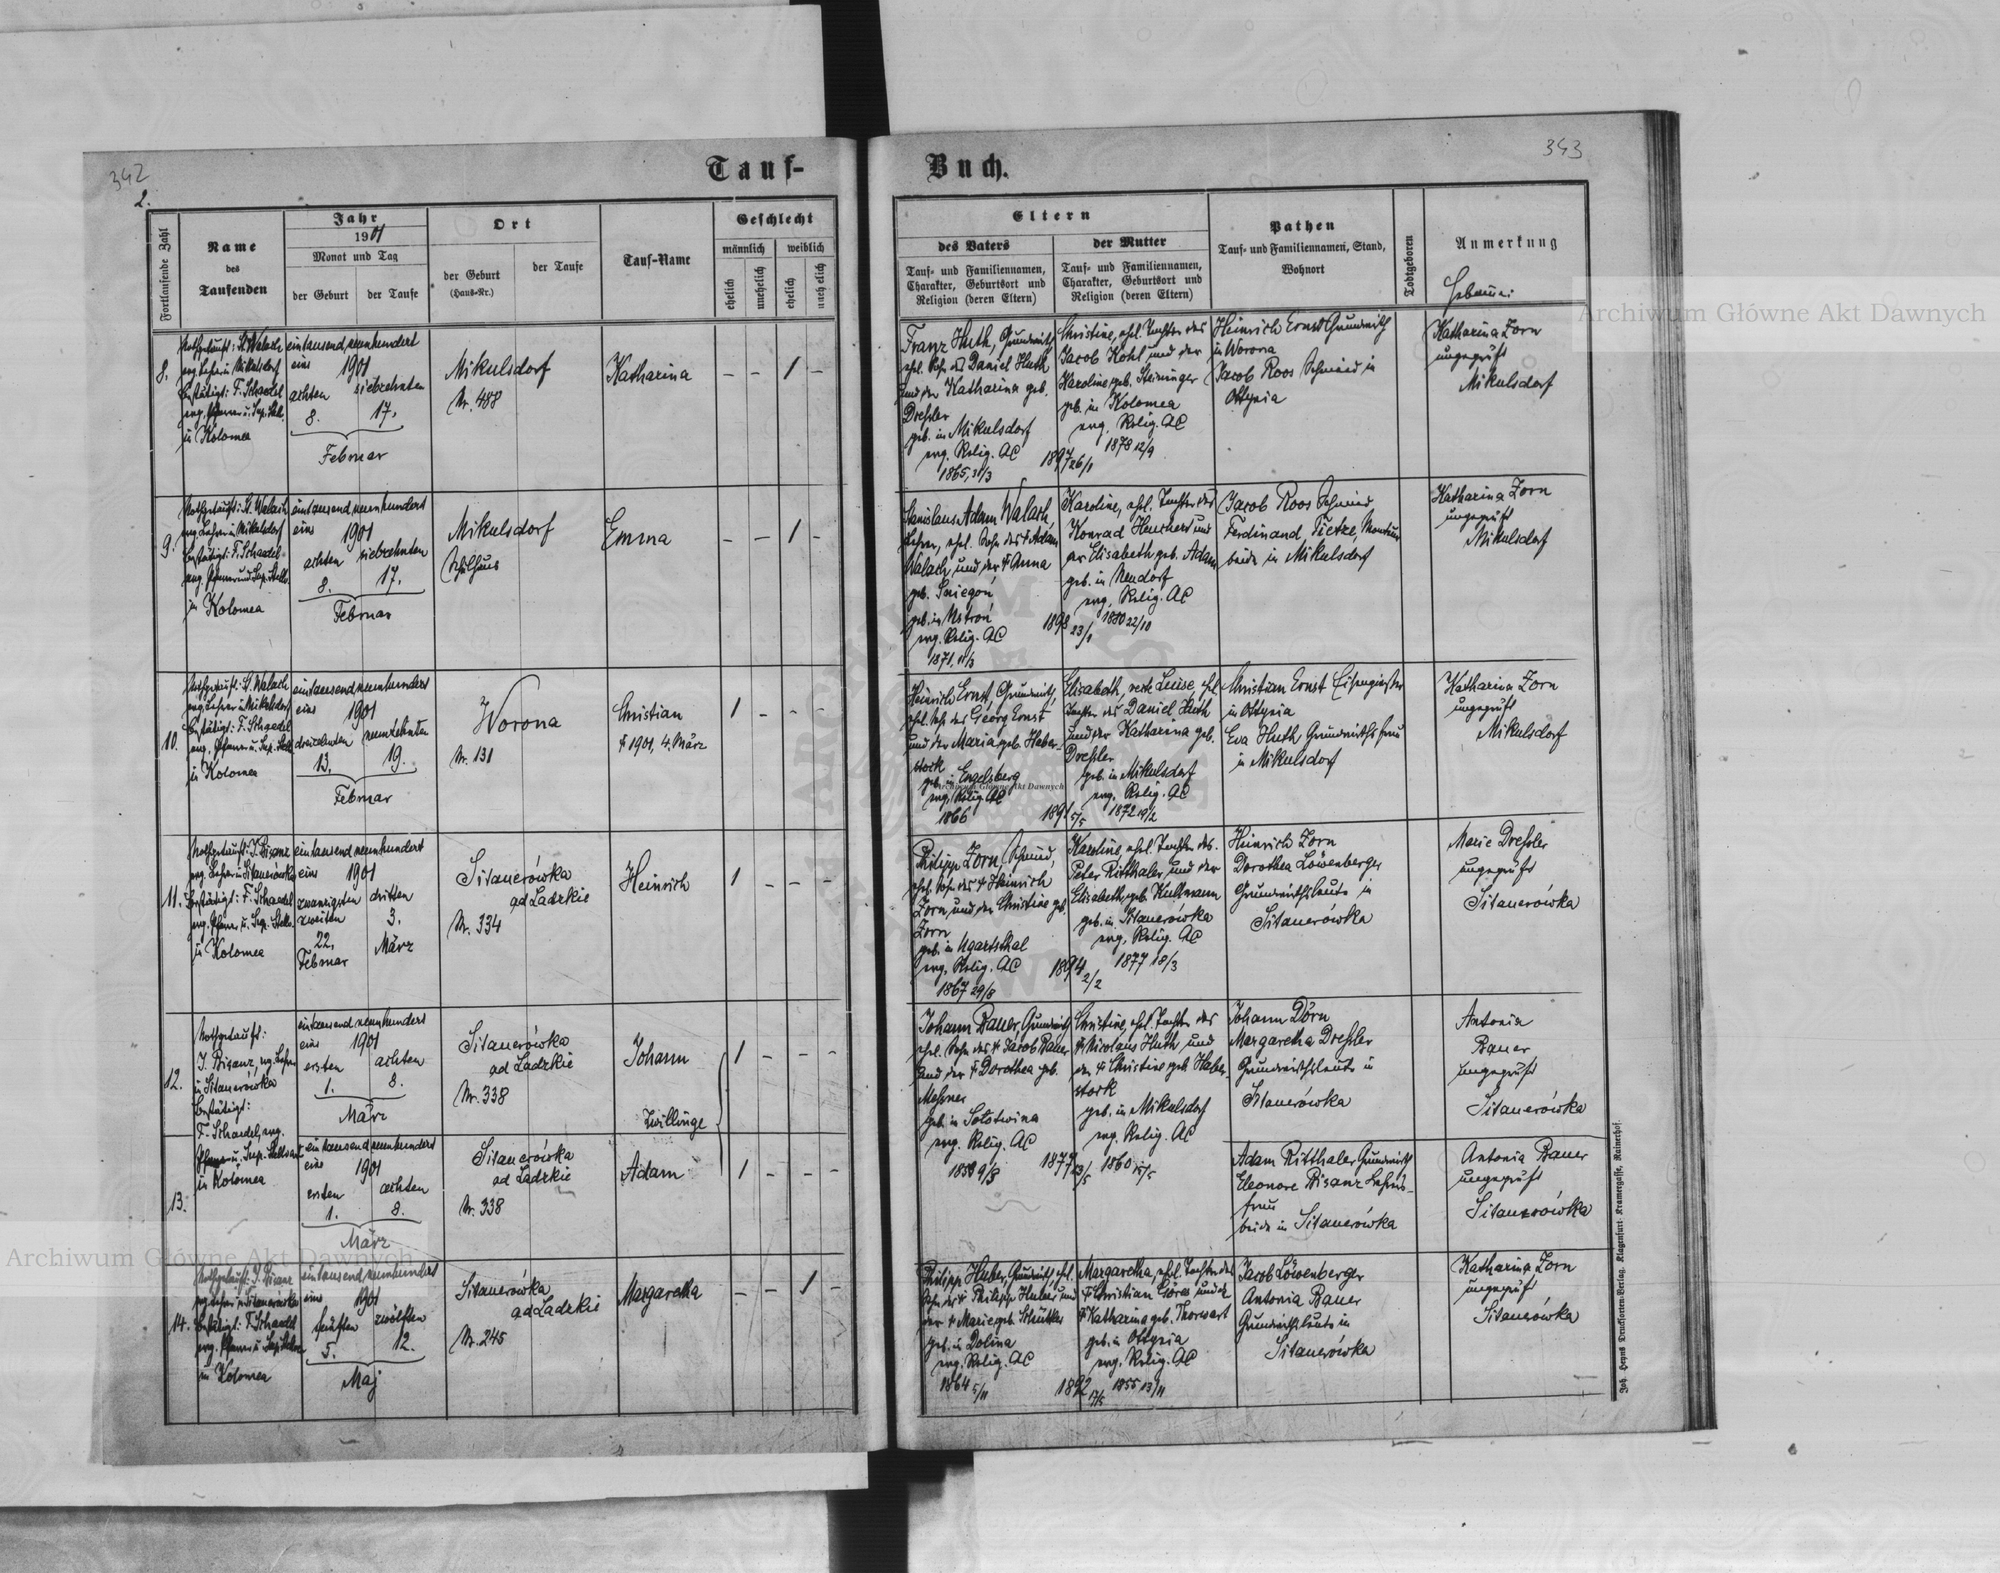 342
2.
Tauf-
Fortlaufende Zahl
Name
des
Taufenden
Jahr
1901
Monat und Tag
der Geburt
der Taufe
Ort
der Geburt
(Haus-Nr.)
der Taufe
Tauf-Name
Geschlecht
männlich
weiblich
ehelich
unehelich
ehelich
unehelich
8.
Nothgetauft: St. Walach
evg. Lehrer in Mikulsdorf
Bestätigt: F. Schaedel
evg. Pfarrer u. Sup. Stell.
in Kolomea
eintausend neunhundert
eins 1901
achten siebzehnten
8. 17.
Februar
Mikulsdorf
Nr. 488
Katharina
– – 1 –
9.
Nothgetauft: St. Walach
evg. Lehrer in Mikulsdorf
Bestätigt: F. Schaedel
evg. Pfarrer und Sup. Stellv.
in Kolomea
eintausend neunhundert
eins 1901
achten siebzehnten
8. 17.
Februar
Mikulsdorf
Schulhaus
Emma
– – 1 –
10.
Nothgetauft: St. Walach
evg. Lehrer in Mikulsdorf
Bestätigt: F. Schaedel
evg. Pfarrer u. Sup. Stell.
in Kolomea
eintausend neunhundert
eins 1901
dreizehnten neunzehnten
13. 19.
Februar
Worona
Nr. 131
Christian
† 1901, 4. März
1 – – –
11.
Nothgetauft: J. Bisanz
evg. Lehrer in Sitauerówka
Bestätigt: F. Schaedel
evg. Pfarrer u. Sup. Stellv.
in Kolomea
eintausend neunhundert
eins 1901
zwanzigsten dritten
zweiten 3.
22. März
Februar
Sitauerówka
ad Ladzkie
Nr. 334
Heinrich
1 – – –
12.
Nothgetauft:
J. Bisanz, evg. Lehrer
in Sitauerówka
Bestätigt:
F. Schaedel, evg.
Pfarrer u. Sup. Stellvert
in Kolomea
eintausend neunhundert
eins 1901
ersten achten
1. 8.
März
Sitauerówka
ad Ladzkie
Nr. 338
Johann
Zwillinge
1 – – –
13.
eintausend neunhundert
eins 1901
ersten achten
1. 8.
März
Sitauerówka
ad Ladzkie
Nr. 338
Adam
1 – – –
14.
Nothgetauft: J. Bisanz
evg. Lehrer in Sitauerówka
Bestätigt: F. Schaedel
evg. Pfarrer u. Sup. Stellv.
in Kolomea
eintausend neunhundert
eins 1901
fünften zwölften
5. 12.
Maj
Sitauerówka
ad Ladzkie
Nr. 245
Margaretha
– – 1 –
343
Buch.
Eltern
des Vaters
Tauf- und Familiennamen,
Charakter, Geburtsort und
Religion (deren Eltern)
der Mutter
Tauf- und Familiennamen,
Charakter, Geburtsort und
Religion (deren Eltern)
Pathen
Tauf- und Familiennamen, Stand,
Wohnort
Todtgeboren
Anmerkung
Franz Huth, Grundwirth
ehl. Sohn des Daniel Huth
und der Katharina geb.
Dreßler
geb. in Mikulsdorf
evg. Relig. AC
1865, 31/3
1897 26/1
Christine, ehl. Tochter des
Jacob Kohl und der
Karoline geb. Steininger
geb. in Kolomea
evg. Relig. AC
1878 12/9
Heinrich Ernst Grundwirth
in Worona
Jacob Roos Schmied in
Ottynia
Katharina Zorn
ungeprüft
Mikulsdorf
Stanislaus Adam Walach
Lehrer, ehel. Sohn des † Adam
Walach und der † Anna
geb. Sniegoń
geb. in Ustroń
evg. Relig. AC
1871, 11/3
1898 23/1
Karoline, ehl. Tochter des
Konrad Heuchert und
der Elisabeth geb. Adam
geb. in Neudorf
evg. Relig. AC
1880 22/10
Jacob Roos Schmied
Ferdinand Tietze, Monteur
beide in Mikulsdorf
Katharina Zorn
ungeprüft
Mikulsdorf
Heinrich Ernst, Grundwirth,
ehl. Sohn des Georg Ernst
und der Maria geb. Haber-
stock
geb. in Engelsberg
evg. Relig. AC
1866
1891 5/5
Elisabeth, recte Luise, ehl.
Tochter des Daniel Huth
und der Katharina geb.
Dreßler
geb. in Mikulsdorf
evg. Relig. AC
1872 19/2
Christian Ernst Eisengießer
in Ottynia
Eva Huth Grundwirthsfrau
in Mikulsdorf
Katharina Zorn
ungeprüft
Mikulsdorf
Philipp Zorn, Schmied,
ehel. Sohn des † Heinrich
Zorn und der Christine geb.
Zorn
geb. in Ugartsthal
evg. Relig. AC
1867 29/8
1894 2/2
Karoline, ehl. Tochter des
Peter Ritthaler und der
Elisabeth geb. Kullmann
geb. in Sitauerówka
evg. Relig. AC
1877 18/3
Heinrich Zorn
Dorothea Löwenberger
Grundwirthsleute in
Sitauerówka
Marie Dreßler
ungeprüft
Sitauerówka
Johann Bauer, Grundwirth
ehl. Sohn des † Jacob Bauer
und der † Dorothea geb.
Meßner
geb. in Sołotwina
evg. Relig. AC
1877 23/5
Christine, ehl. Tochter des
† Nicolaus Huth und
der † Christine geb. Haber-
stock
geb. in Mikulsdorf
evg. Relig. AC
1860 15/5
Johann Dörn
Margaretha Dreßler
Grundwirthsleute in
Sitauerówka
Antonia
Bauer
ungeprüft
Sitauerówka
Adam Ritthaler Grundwirth
Eleonore Bisanz Lehrers-
frau
beide in Sitauerówka
Antonia Bauer
ungeprüft
Sitauerówka
Philipp Huber, Grundwirth, ehl.
Sohn des † Philipp Huber und
der † Marie geb. Stürtkler
geb. in Dolina
evg. Relig. AC
1864 5/11
1892 17/5
Margaretha, ehl. Tochter des
† Christian Göres und der
† Katharina geb. Thorwart
geb. in Ottynia
evg. Relig. AC
1855 13/11
Jacob Löwenberger
Antonia Bauer
Grundwirthsleute in
Sitauerówka
Katharina Zorn
ungeprüft
Sitauerówka
Joh. Heyns Drucksorten-Verlag, Klagenfurt, Kramergasse, Rainerhof.
Archiwum Główne Akt Dawnych
Archiwum Główne Akt Dawnych
Archiwum Główne Akt Dawnych